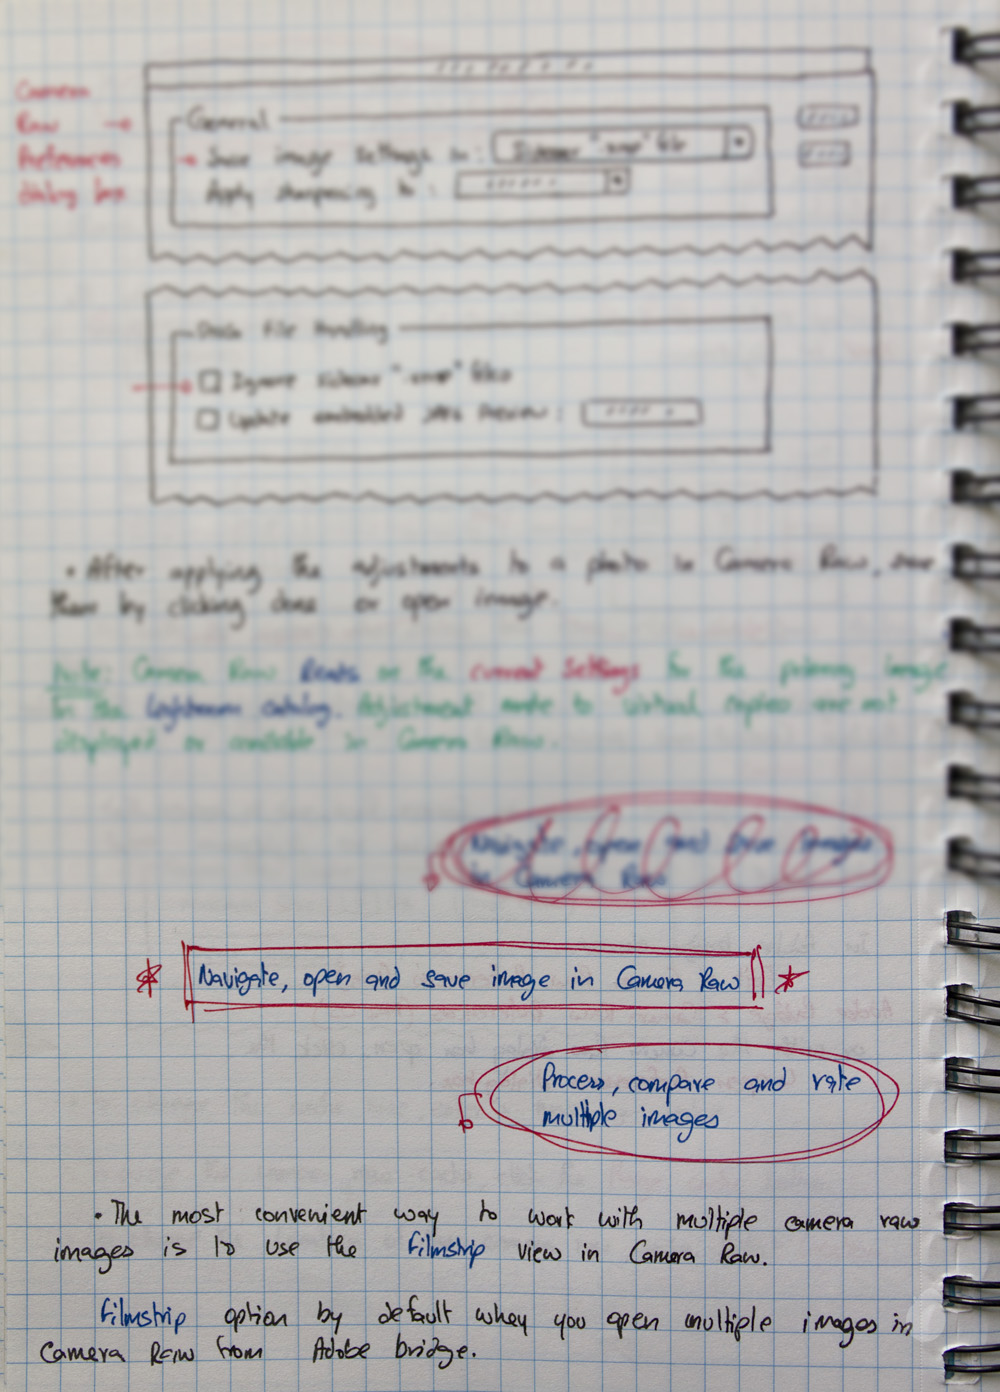 Camera
Raw
Preferences
dialog box
General
Save image settings in: Sidecar ".xmp" file
Apply sharpening to:
File Handling
Ignore sidecar ".xmp" files
Update embedded JPEG Preview:
• After applying the adjustments to a photo in Camera Raw, save
them by clicking done or open image.
Note: Camera Raw Reads in the current settings for the primary image
in the Lightroom catalog. Adjustment made to virtual copies are not
displayed or available in Camera Raw.
Navigate, open and save images
in Camera Raw
* Navigate, open and save image in Camera Raw *
Process, compare and rate
multiple images
• The most convenient way to work with multiple camera raw
images is to use the filmstrip view in Camera Raw.
filmstrip option by default whey you open multiple images in
camera Raw from Adobe bridge.